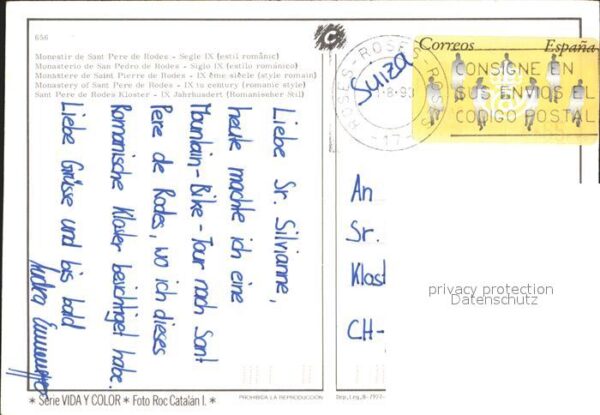 656
Monestir de Sant Pere de Rodes - Segle IX (estil romànic)
Monasterio de San Pedro de Rodes - Siglo IX (estilo románico)
Monastère de Saint Pierre de Rodes - IX ème siècle (style romain)
Monastery of Sant Pere de Rodes - IX th century (romanic style)
Sant Pere de Rodes Kloster - IX Jahrhundert (Romanischer Stil)
Liebe Sr. Silvianne,
heute machte ich eine
Mountain-Bike-Tour nach Sant
Pere de Rodes, wo ich dieses
Romanische Kloster besichtigt habe.
Liebe Grüsse und bis bald
Suiza
ROSES-ROSES-ROSES
Correos España
CONSIGNE EN
SUS ENVIOS EL
CODIGO POSTAL
An
Sr.
Klost
CH-
privacy protection
Datenschutz
* Serie VIDA Y COLOR * Foto Roc Catalán I. *
PROHIBIDA LA REPRODUCCIÓN